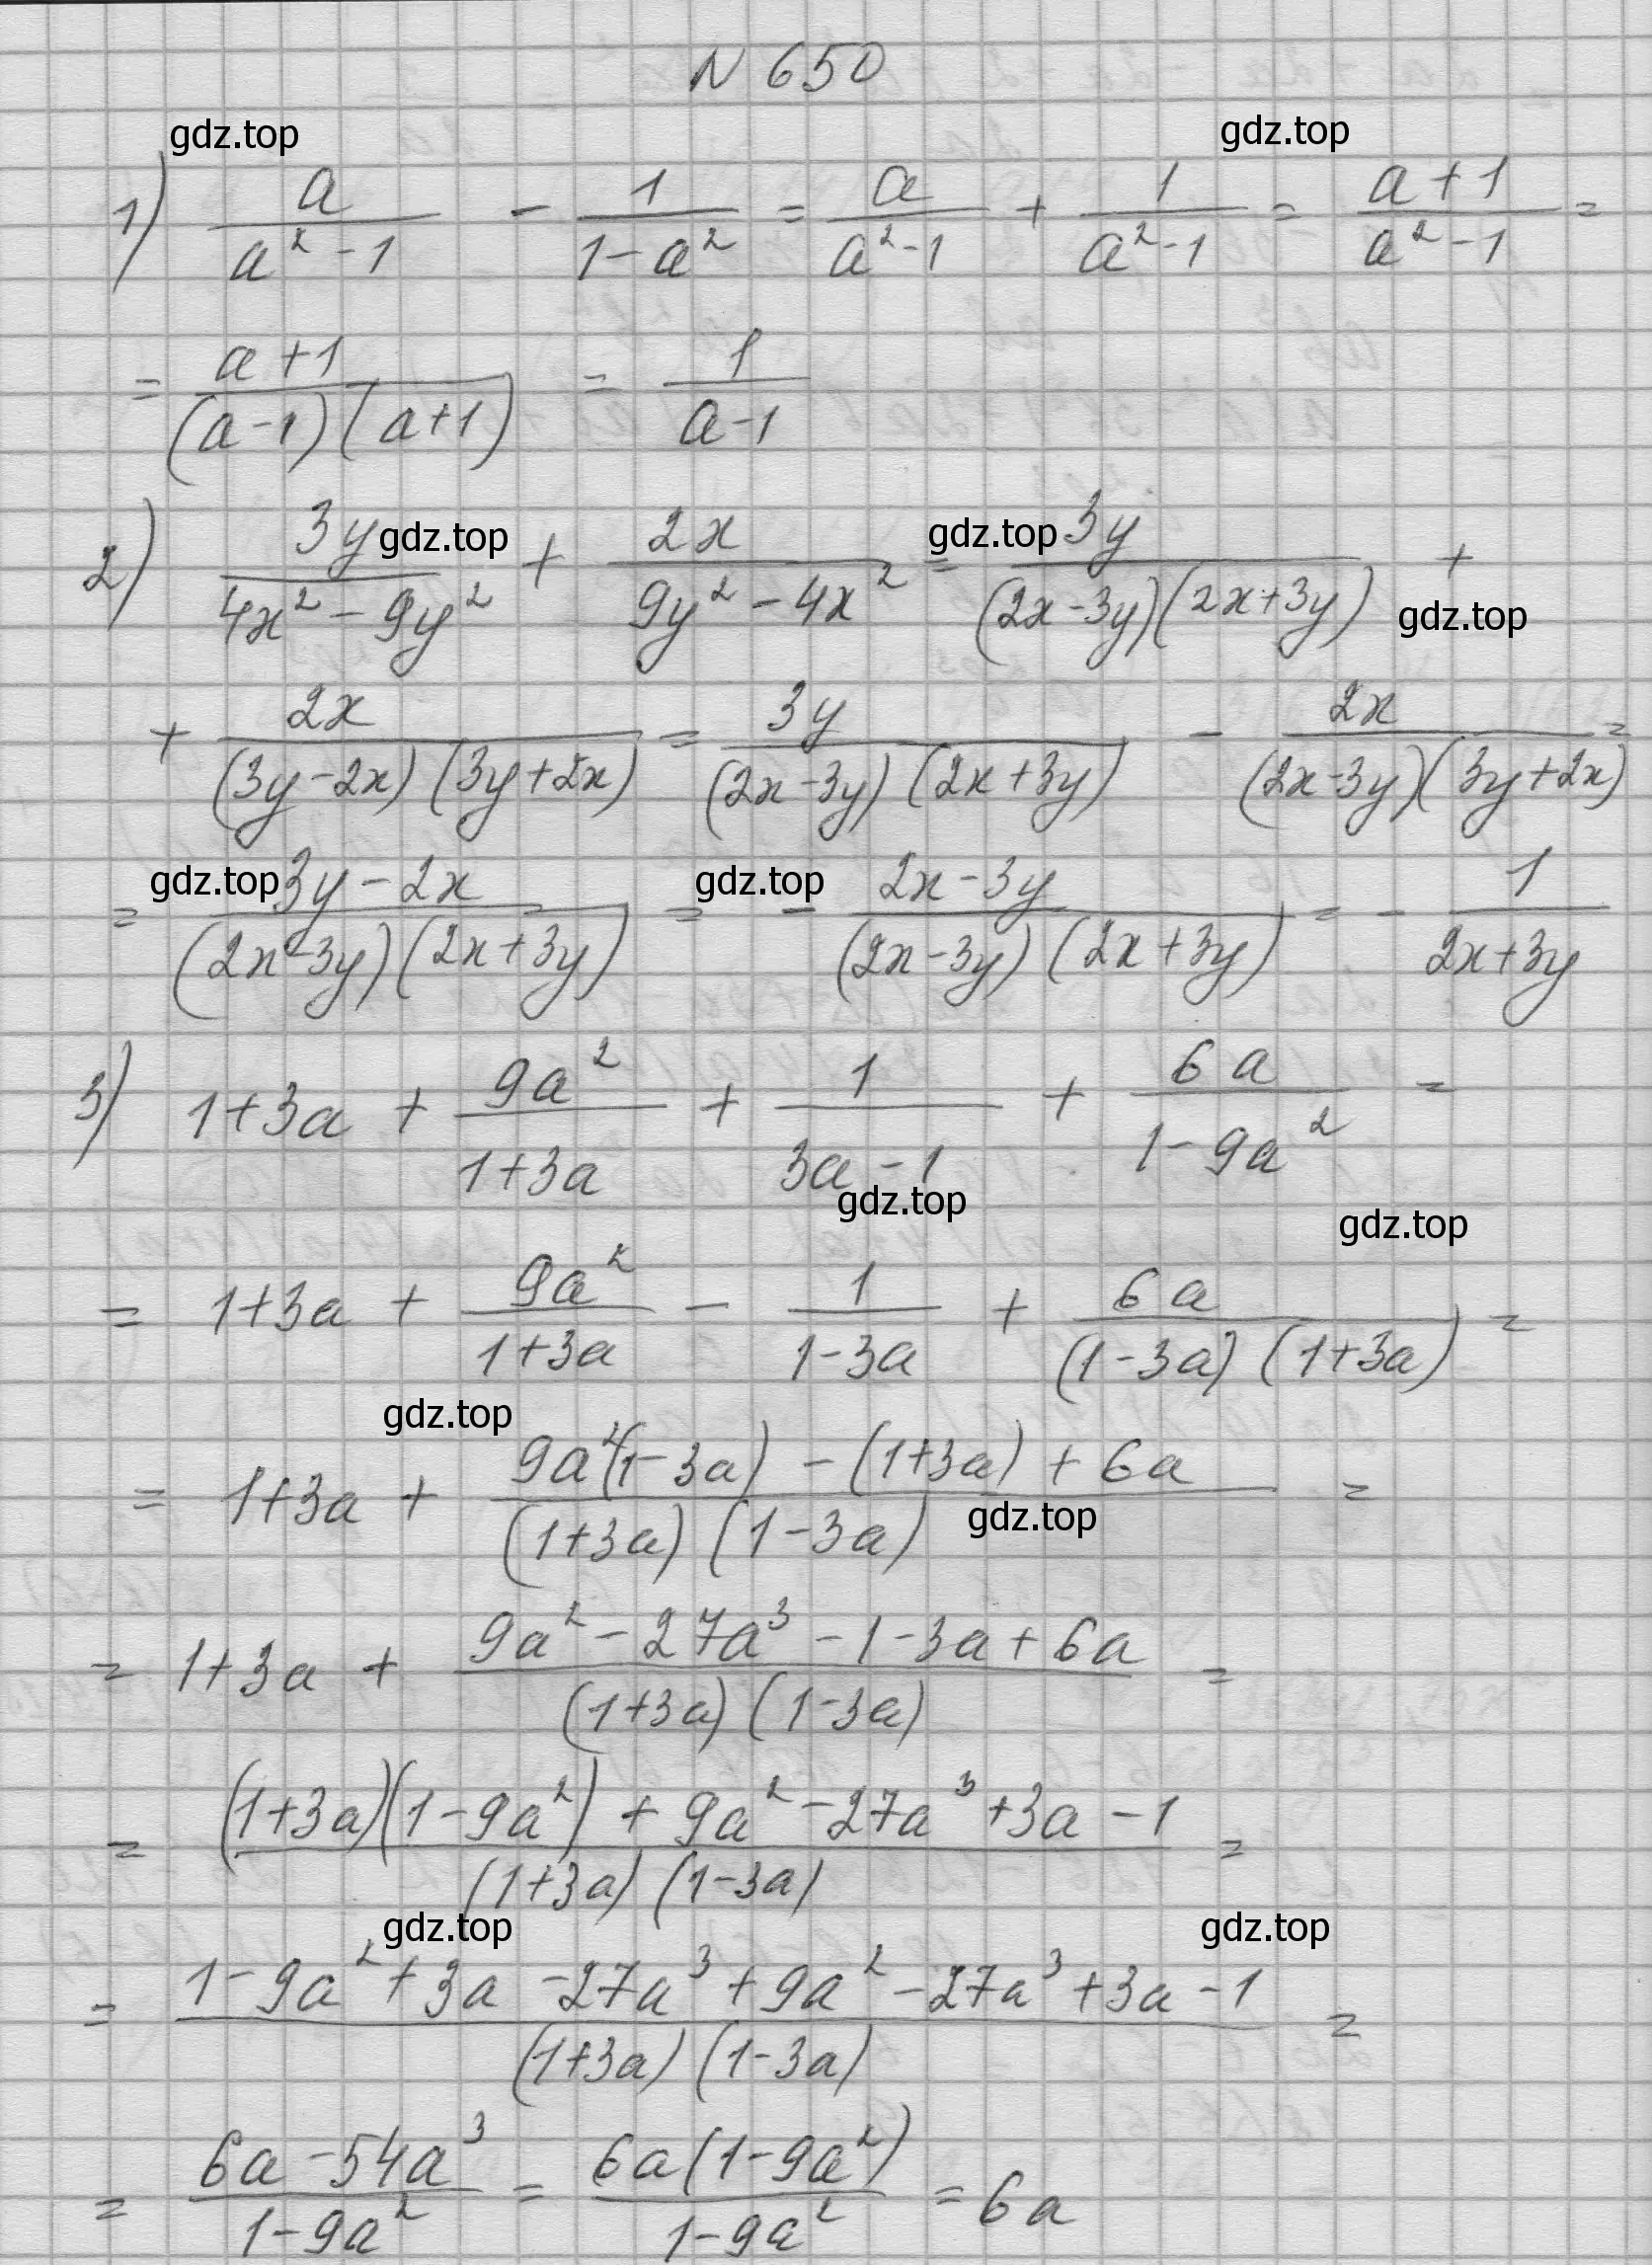 N 650
gdz.top gdz.top
1) a/(a² - 1) - 1/(1 - a²) = a/(a² - 1) + 1/(a² - 1) = (a + 1)/(a² - 1) =
= (a + 1)/((a - 1)(a + 1)) = 1/(a - 1)
2) 3y/(4x² - 9y²) + 2x/(9y² - 4x²) = 3y/((2x - 3y)(2x + 3y)) +
gdz.top gdz.top gdz.top
+ 2x/((3y - 2x)(3y + 2x)) = 3y/((2x - 3y)(2x + 3y)) - 2x/((2x - 3y)(3y + 2x)) =
gdz.top gdz.top
= (3y - 2x)/((2x - 3y)(2x + 3y)) = - (2x - 3y)/((2x - 3y)(2x + 3y)) = - 1/(2x + 3y)
3) 1 + 3a + 9a²/(1 + 3a) + 1/(3a - 1) + 6a/(1 - 9a²) =
gdz.top gdz.top
= 1 + 3a + 9a²/(1 + 3a) - 1/(1 - 3a) + 6a/((1 - 3a)(1 + 3a)) =
gdz.top
= 1 + 3a + (9a²(1 - 3a) - (1 + 3a) + 6a)/((1 + 3a)(1 - 3a)) =
gdz.top
= 1 + 3a + (9a² - 27a³ - 1 - 3a + 6a)/((1 + 3a)(1 - 3a)) =
= ((1 + 3a)(1 - 9a²) + 9a² - 27a³ + 3a - 1)/((1 + 3a)(1 - 3a)) =
gdz.top gdz.top
= (1 - 9a² + 3a - 27a³ + 9a² - 27a³ + 3a - 1)/((1 + 3a)(1 - 3a)) =
= (6a - 54a³)/(1 - 9a²) = 6a(1 - 9a²)/(1 - 9a²) = 6a